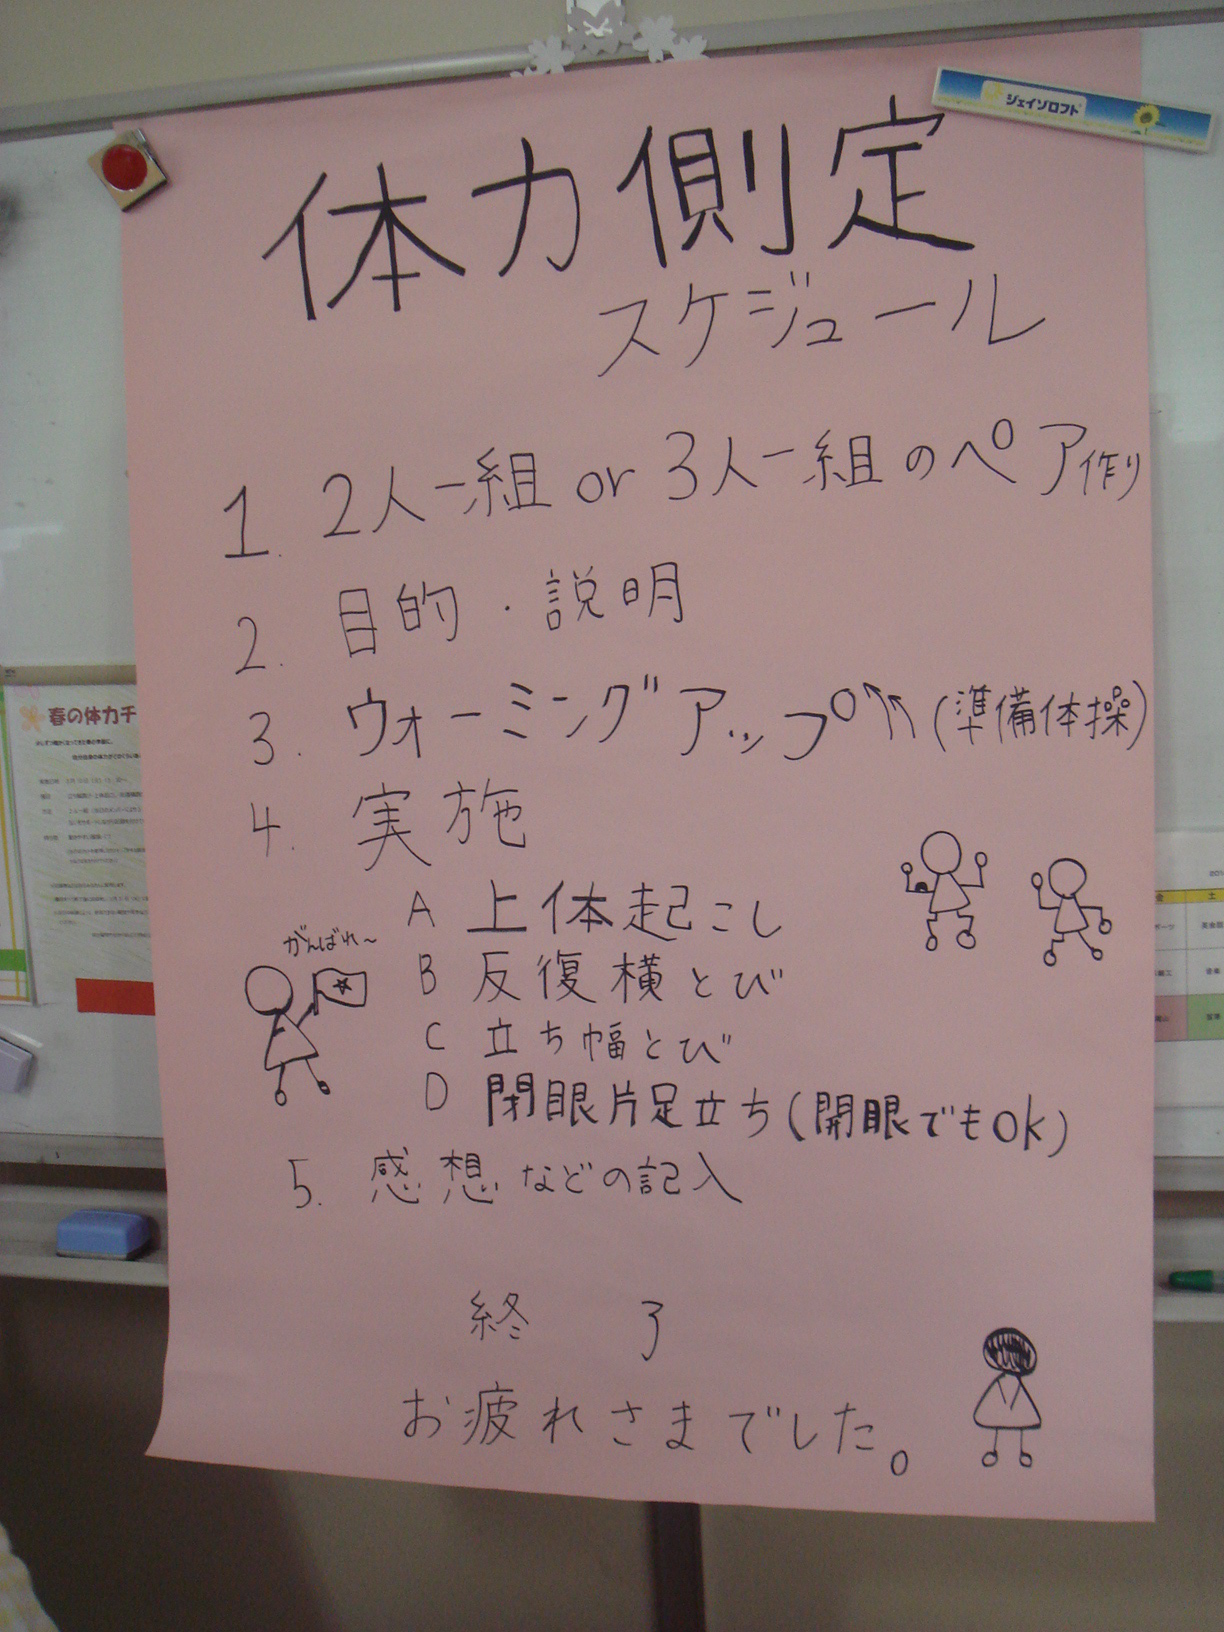 ジェイゾロフト
体力側定
スケジュール
1. 2人一組 or 3人一組のペア作り
2. 目的・説明
3. ウォーミングアップ↑↑(準備体操)
4. 実施
A 上体起こし
がんばれ~
B 反復横とび
C 立ち幅とび
D 閉眼片足立ち(開眼でもOK)
5. 感想などの記入
終了
お疲れさまでした。
春の体力チ
金 土